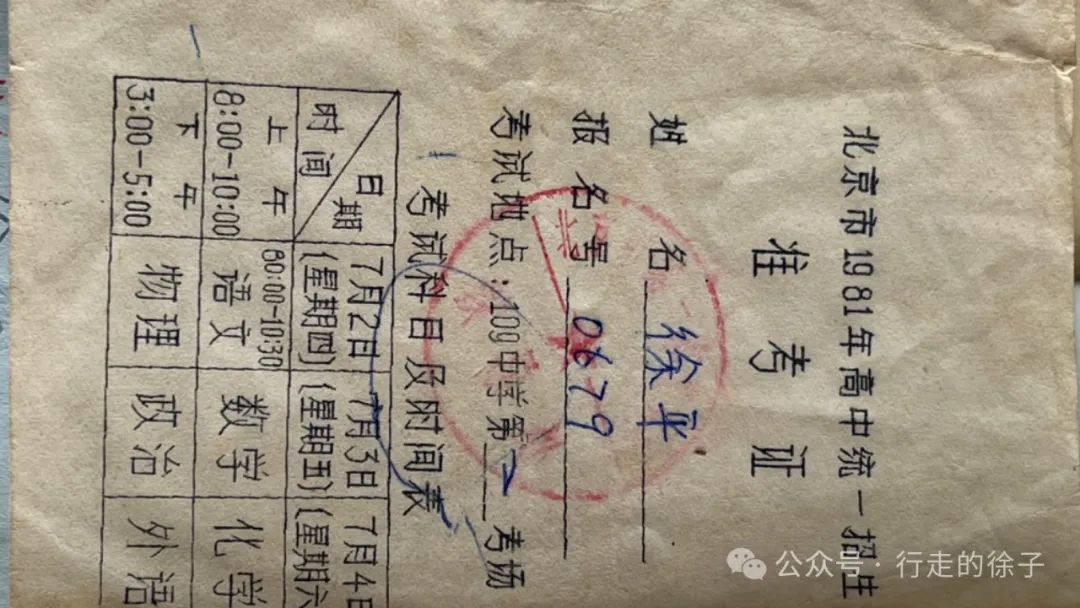 北京市1981年高中统一招生
准考证
姓名 徐平
报名号 0679
考试地点:109中学第 考场
考试科目及时间表
日期 7月2日 7月3日 7月4日
时间 (星期四) (星期五) (星期六
上午 80:00-10:30
8:00-10:00 语文 数学 化学
下午
3:00-5:00 物理 政治 外语
公众号·行走的徐子